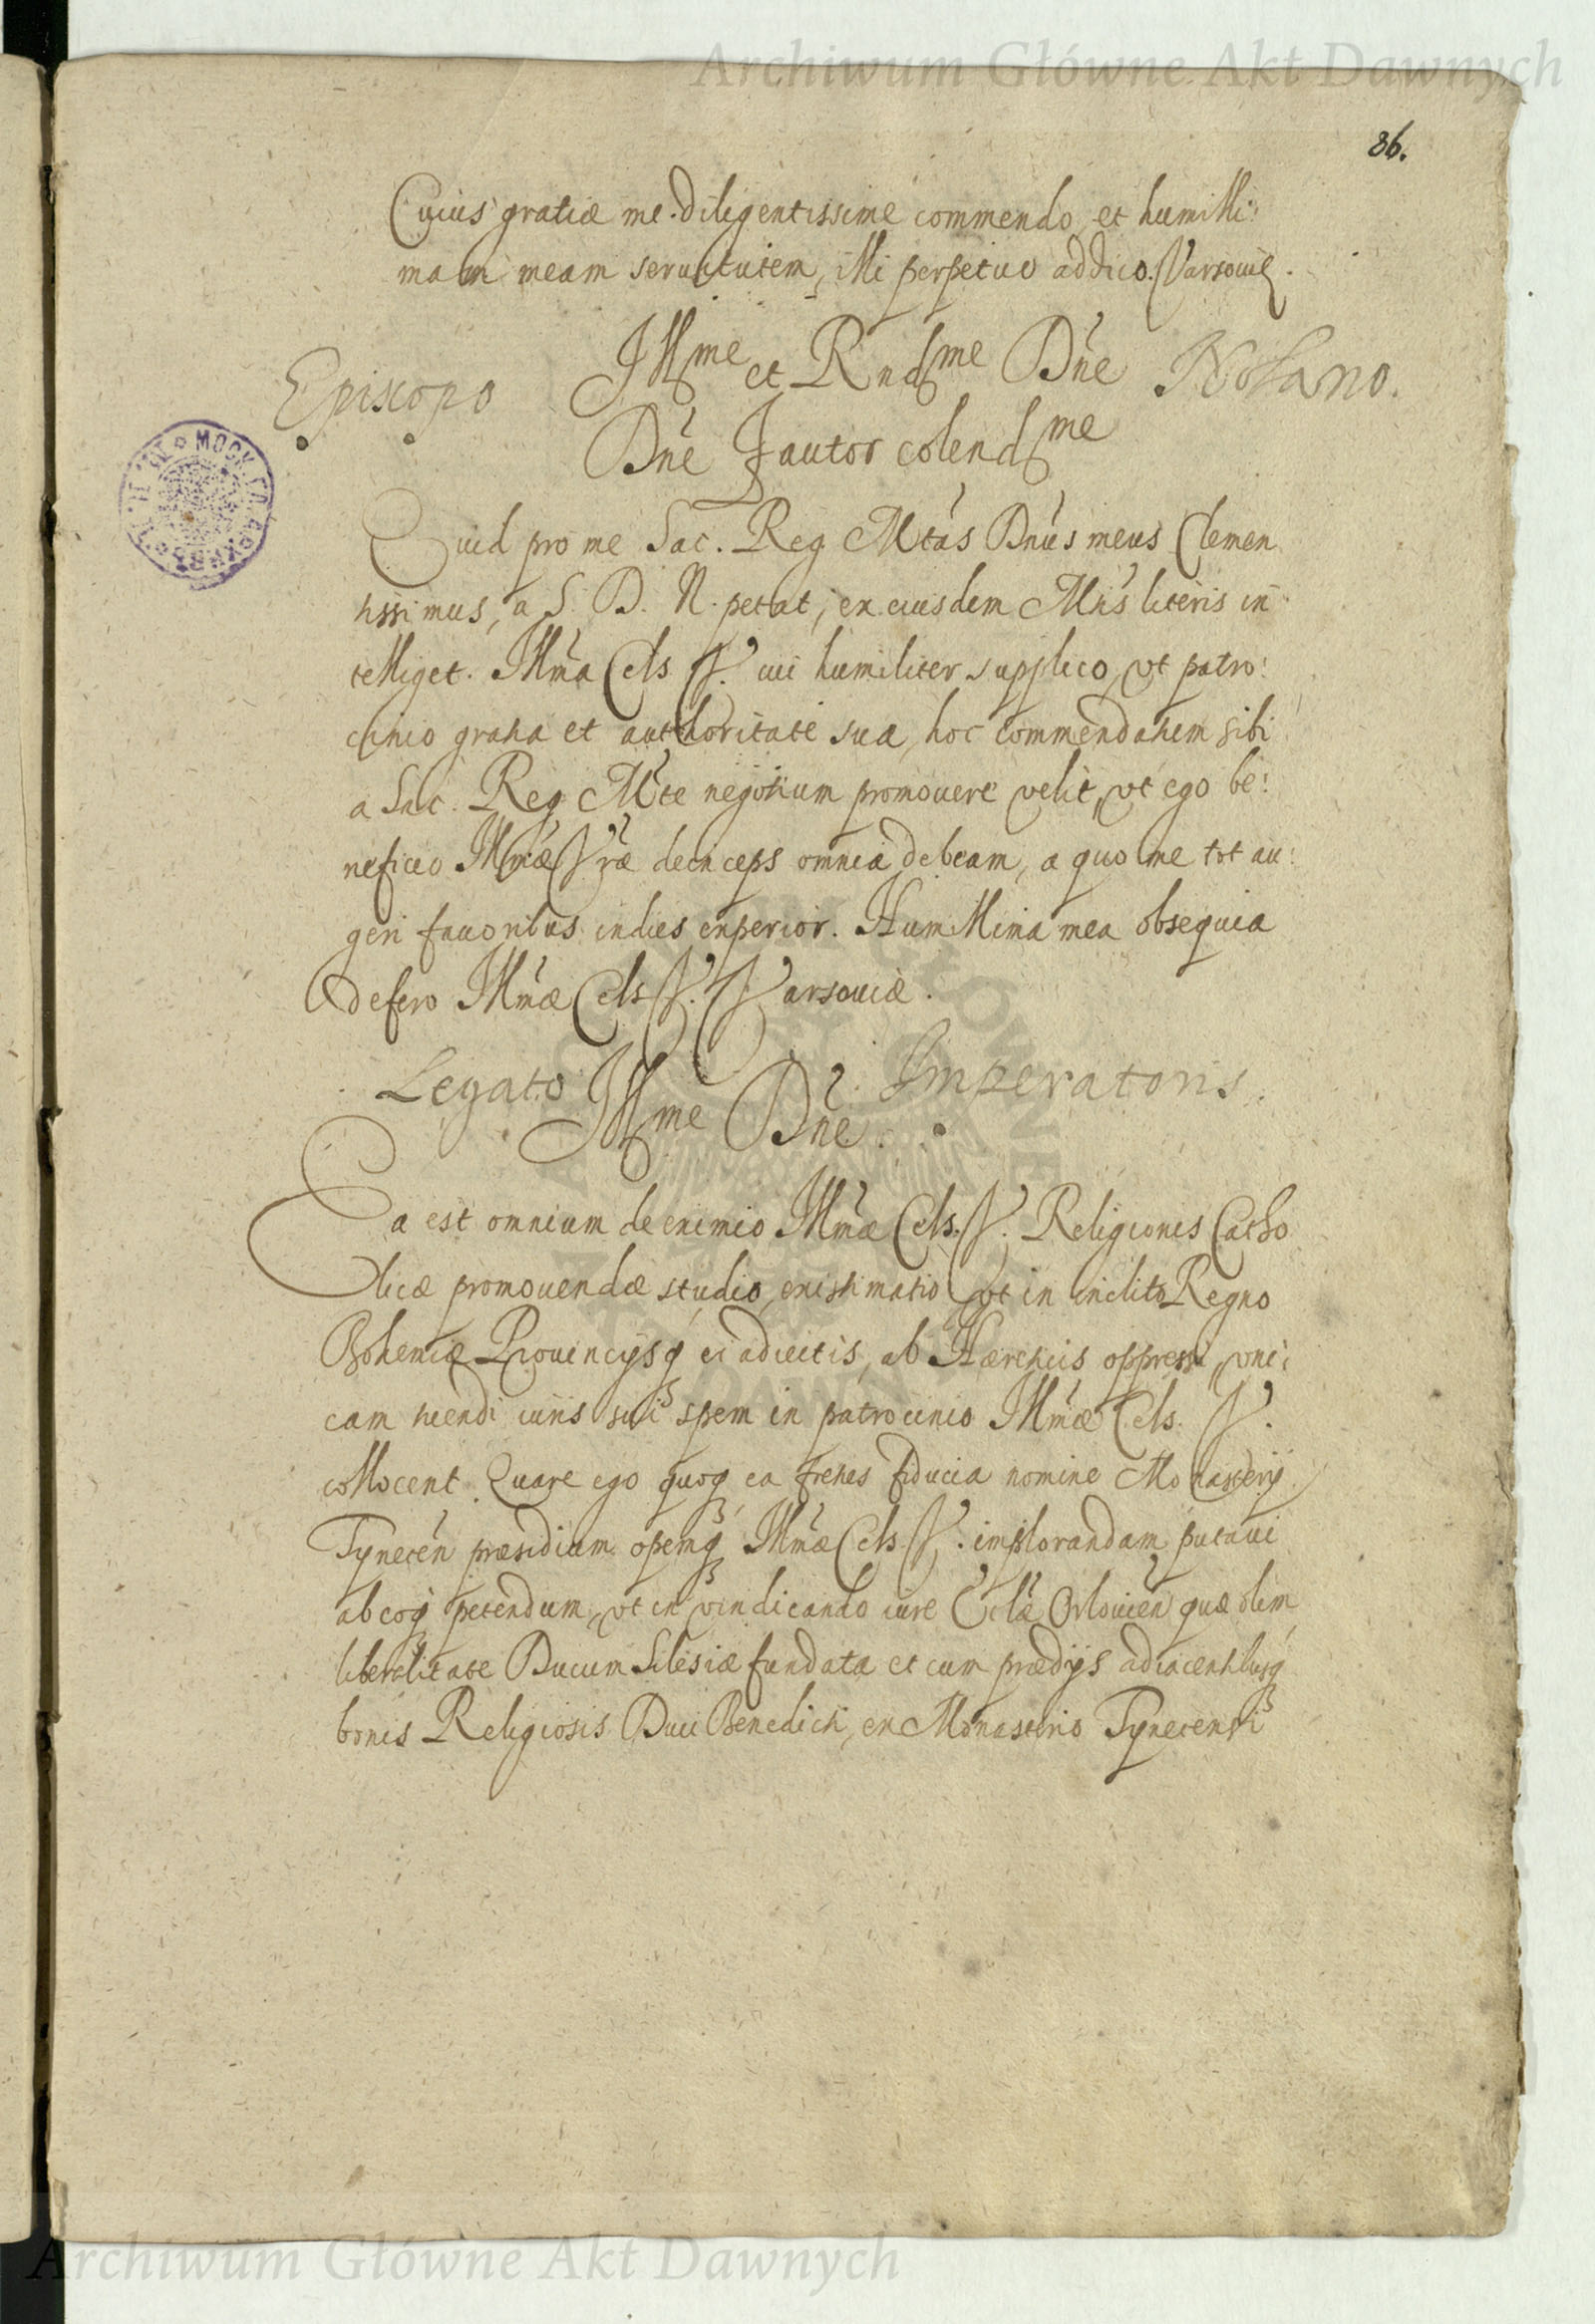 Archiwum Główne Akt Dawnych
86.
Cuius gratiæ me diligentissime commendo, et humilli:
mam meam seruitutem, illi perpetuo addico. Varsouię.
Illme et Rndme Dne
Episcopo Nolano.
Dne Fautor colendme
Quid pro me Sac. Reg Mtas Dnus meus Clemen
tissimus, a S. D. N. petat, ex eiusdem Mtis literis in
telliget. Illma Cels V. cui humiliter supplico, vt patro:
cinio gratia et authoritate sua, hoc commendatum sibi
a Sac. Reg Mte negotium promouere velit, vt ego be:
neficio Illmæ Vræ deinceps omnia debeam, a quo me tot au:
geri fauoribus indies experior. Humillima mea obsequia
defero Illmæ Cels V. Varsouiæ.
Legato Imperatoris.
Illme Dne.
Ea est omnium de eximio Illmæ Cels. V. Religionis Catho
licæ promouendæ studio, existimatio vt in inclito Regno
Bohemiæ Prouincijsq ei adiectis, ab Hæreticis oppressi, vni:
cam tuendi iuris sui spem in patrocinio Illmæ Cels. V.
collocent. Quare ego quoq ea fretus fiducia nomine Monasterij
Tynecen præsidium opemq Illmæ Cels. V. implorandam putaui
ab eoq petendum, vt in vindicando iure Orlouien quæ olim
liberalitate Ducum Silesiæ fundata et cum prædijs adiacentibusq
bonis Religiosis Diui Benedicti, ex Monasterio Tynecensi
Archiwum Główne Akt Dawnych